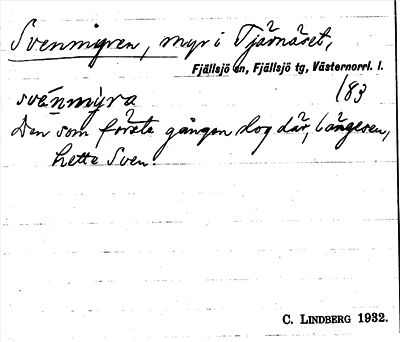 Svenmyren, myr i Tjärnäset,
Fjällsjö sn, Fjällsjö tg, Västernorrl. l.
svénmýra 183
Den som första gången slog där, längesen,
hette Sven.
C. LINDBERG 1932.